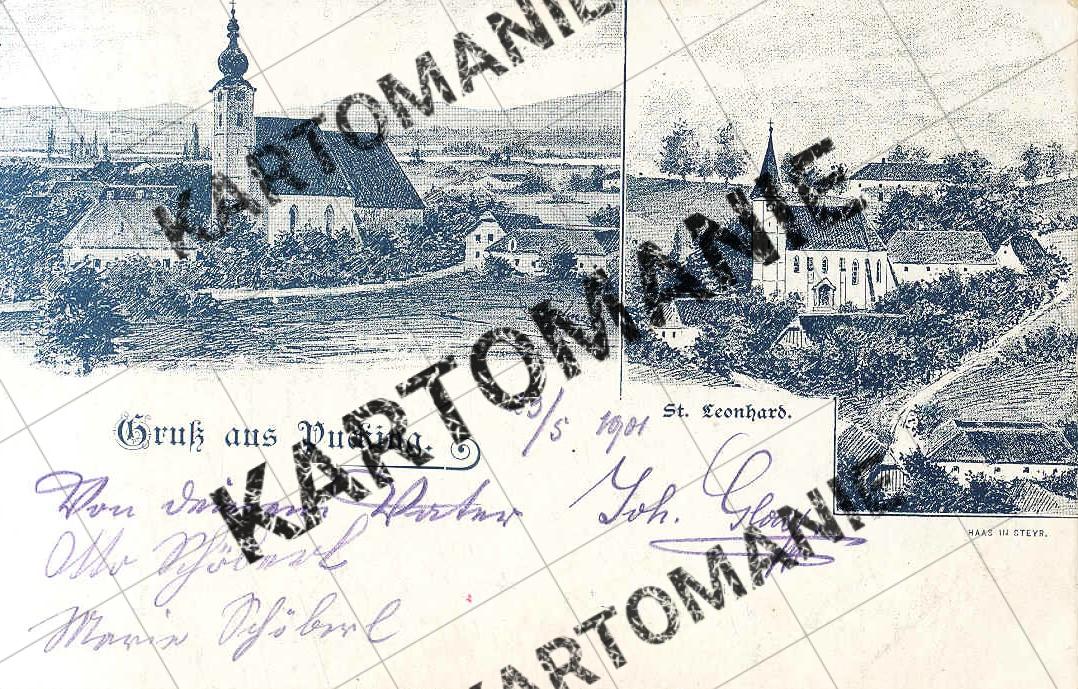 KARTOMANIE
KARTOMANIE
KARTOMANIE
St. Leonhard.
Gruß aus Pucking.
/5 1901
Von deinem Vater
Joh.
Otto Schöberl
Marie Schöberl
HAAS IN STEYR.